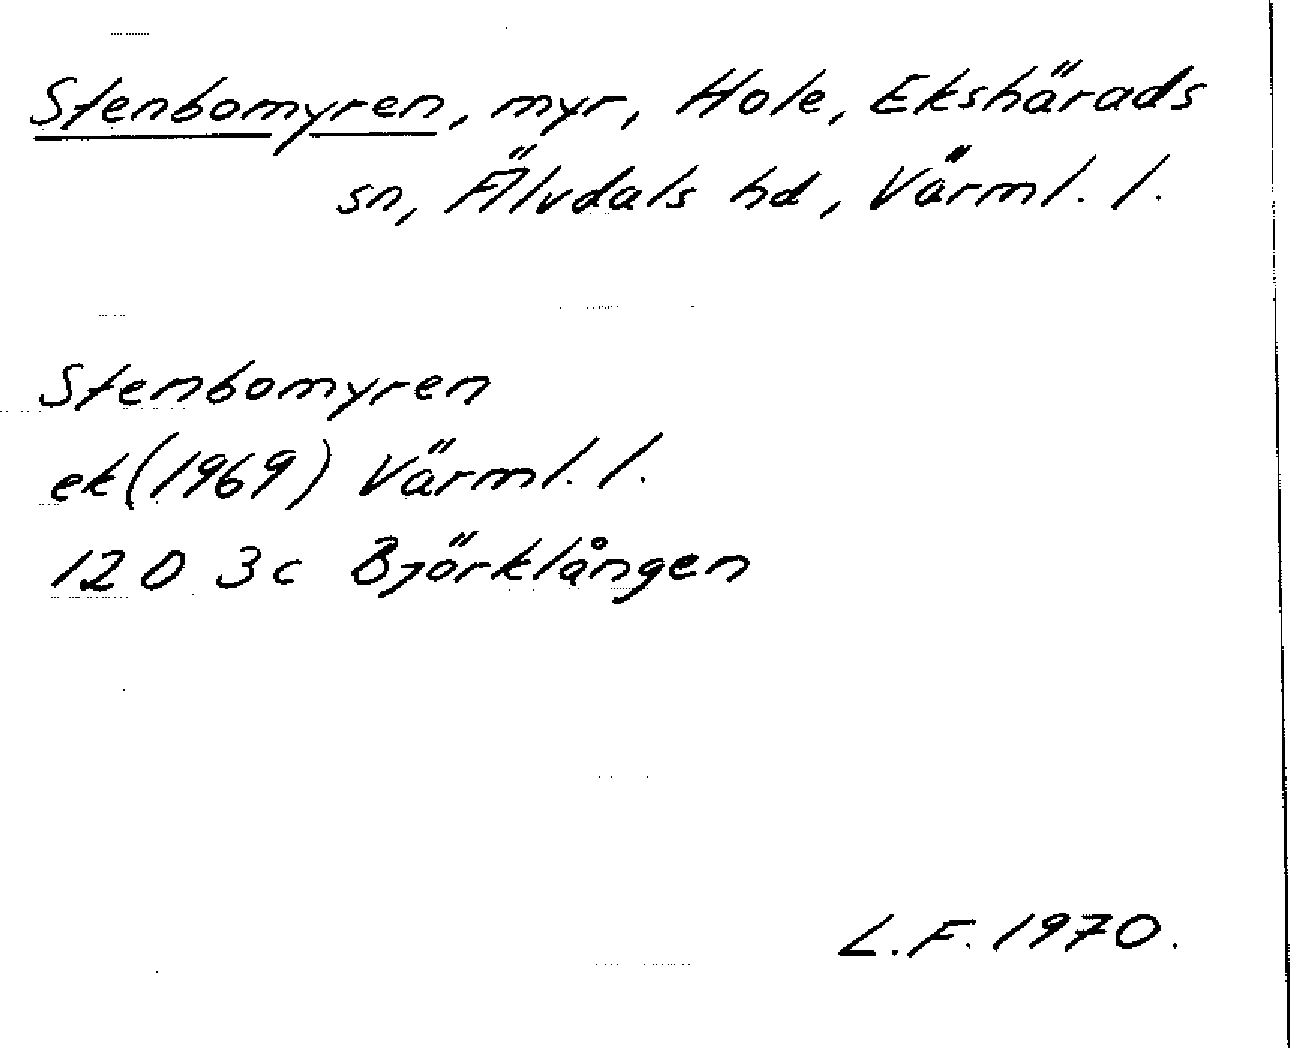 Stenbomyren, myr, Hole, Ekshärads
sn, Älvdals hd, Värml. l.
Stenbomyren
ek (1969) Värml. l.
12 D 3c Björklången
L.F. 1970.